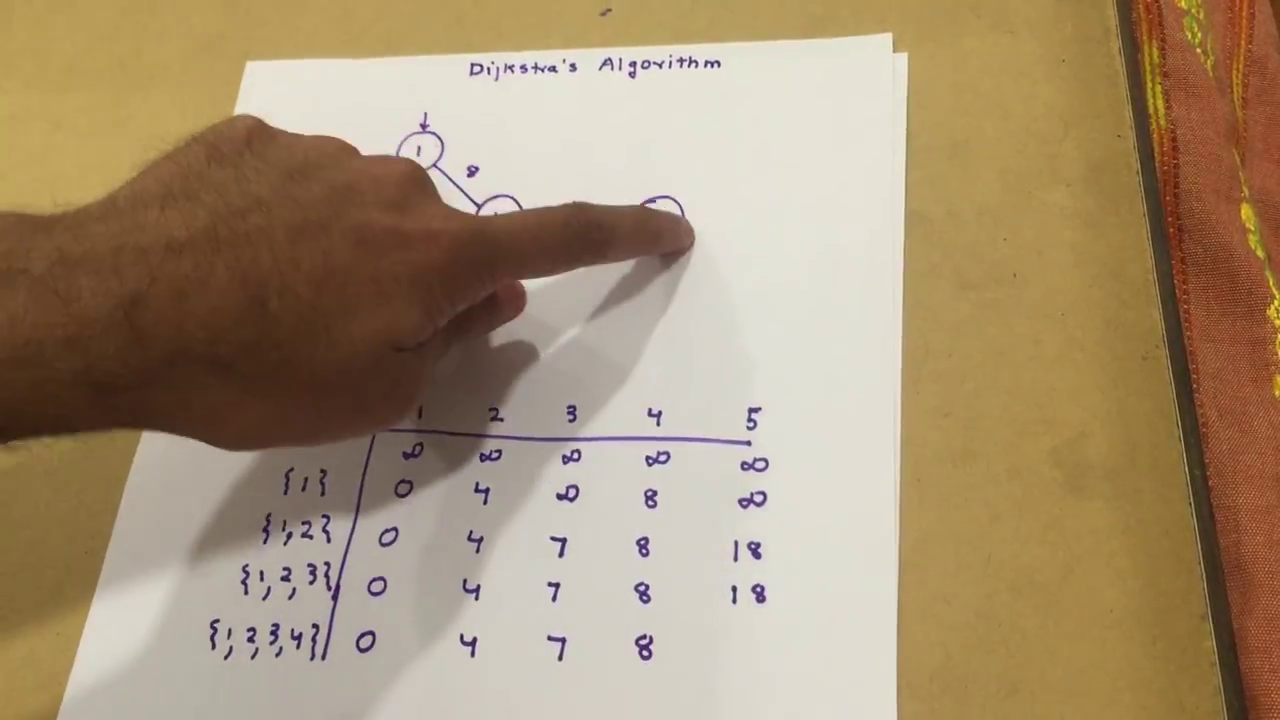 Dijkstra's Algorithm
1
8
1 2 3 4 5
∞ ∞ ∞ ∞ ∞
{1} 0 4 ∞ 8 ∞
{1,2} 0 4 7 8 18
{1,2,3} 0 4 7 8 18
{1,2,3,4} 0 4 7 8